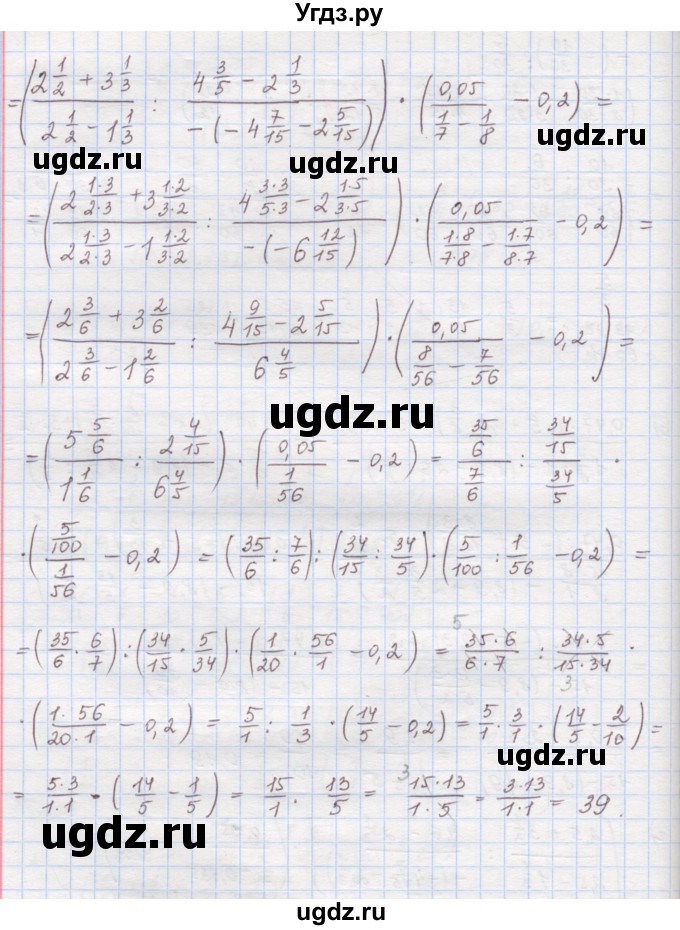 Угдз.ру
= ((2 1/2 + 3 1/3)/(2 1/2 - 1 1/3) : (4 3/5 - 2 1/3)/(-(-4 7/15 - 2 5/15))) · (0,05/(1/7 - 1/8) - 0,2) =
ugdz.ru ugdz.ru ugdz.ru
= ((2 1·3/2·3 + 3 1·2/3·2)/(2 1·3/2·3 - 1 1·2/3·2) : (4 3·3/5·3 - 2 1·5/3·5)/(-(-6 12/15))) · (0,05/(1·8/7·8 - 1·7/8·7) - 0,2) =
= ((2 3/6 + 3 2/6)/(2 3/6 - 1 2/6) : (4 9/15 - 2 5/15)/(6 4/5)) · (0,05/(8/56 - 7/56) - 0,2) =
ugdz.ru
= ((5 5/6)/(1 1/6) : (2 4/15)/(6 4/5)) · (0,05/(1/56) - 0,2) = (35/6)/(7/6) : (34/15)/(34/5) ·
· ((5/100)/(1/56) - 0,2) = (35/6 : 7/6) : (34/15 : 34/5) · (5/100 : 1/56 - 0,2) =
= (35/6 · 6/7) : (34/15 · 5/34) · (1/20 · 56/1 - 0,2) = 5 35·6/6·7 : 34·5/15·34 3 ·
· (1·56/20·1 - 0,2) = 5/1 : 1/3 · (14/5 - 0,2) = 5/1 · 3/1 · (14/5 - 2/10) =
ugdz.ru
= 5·3/1·1 · (14/5 - 1/5) = 15/1 · 13/5 = 3 15·13/1·5 = 3·13/1·1 = 39.
ugdz.ru ugdz.ru
ugdz.ru